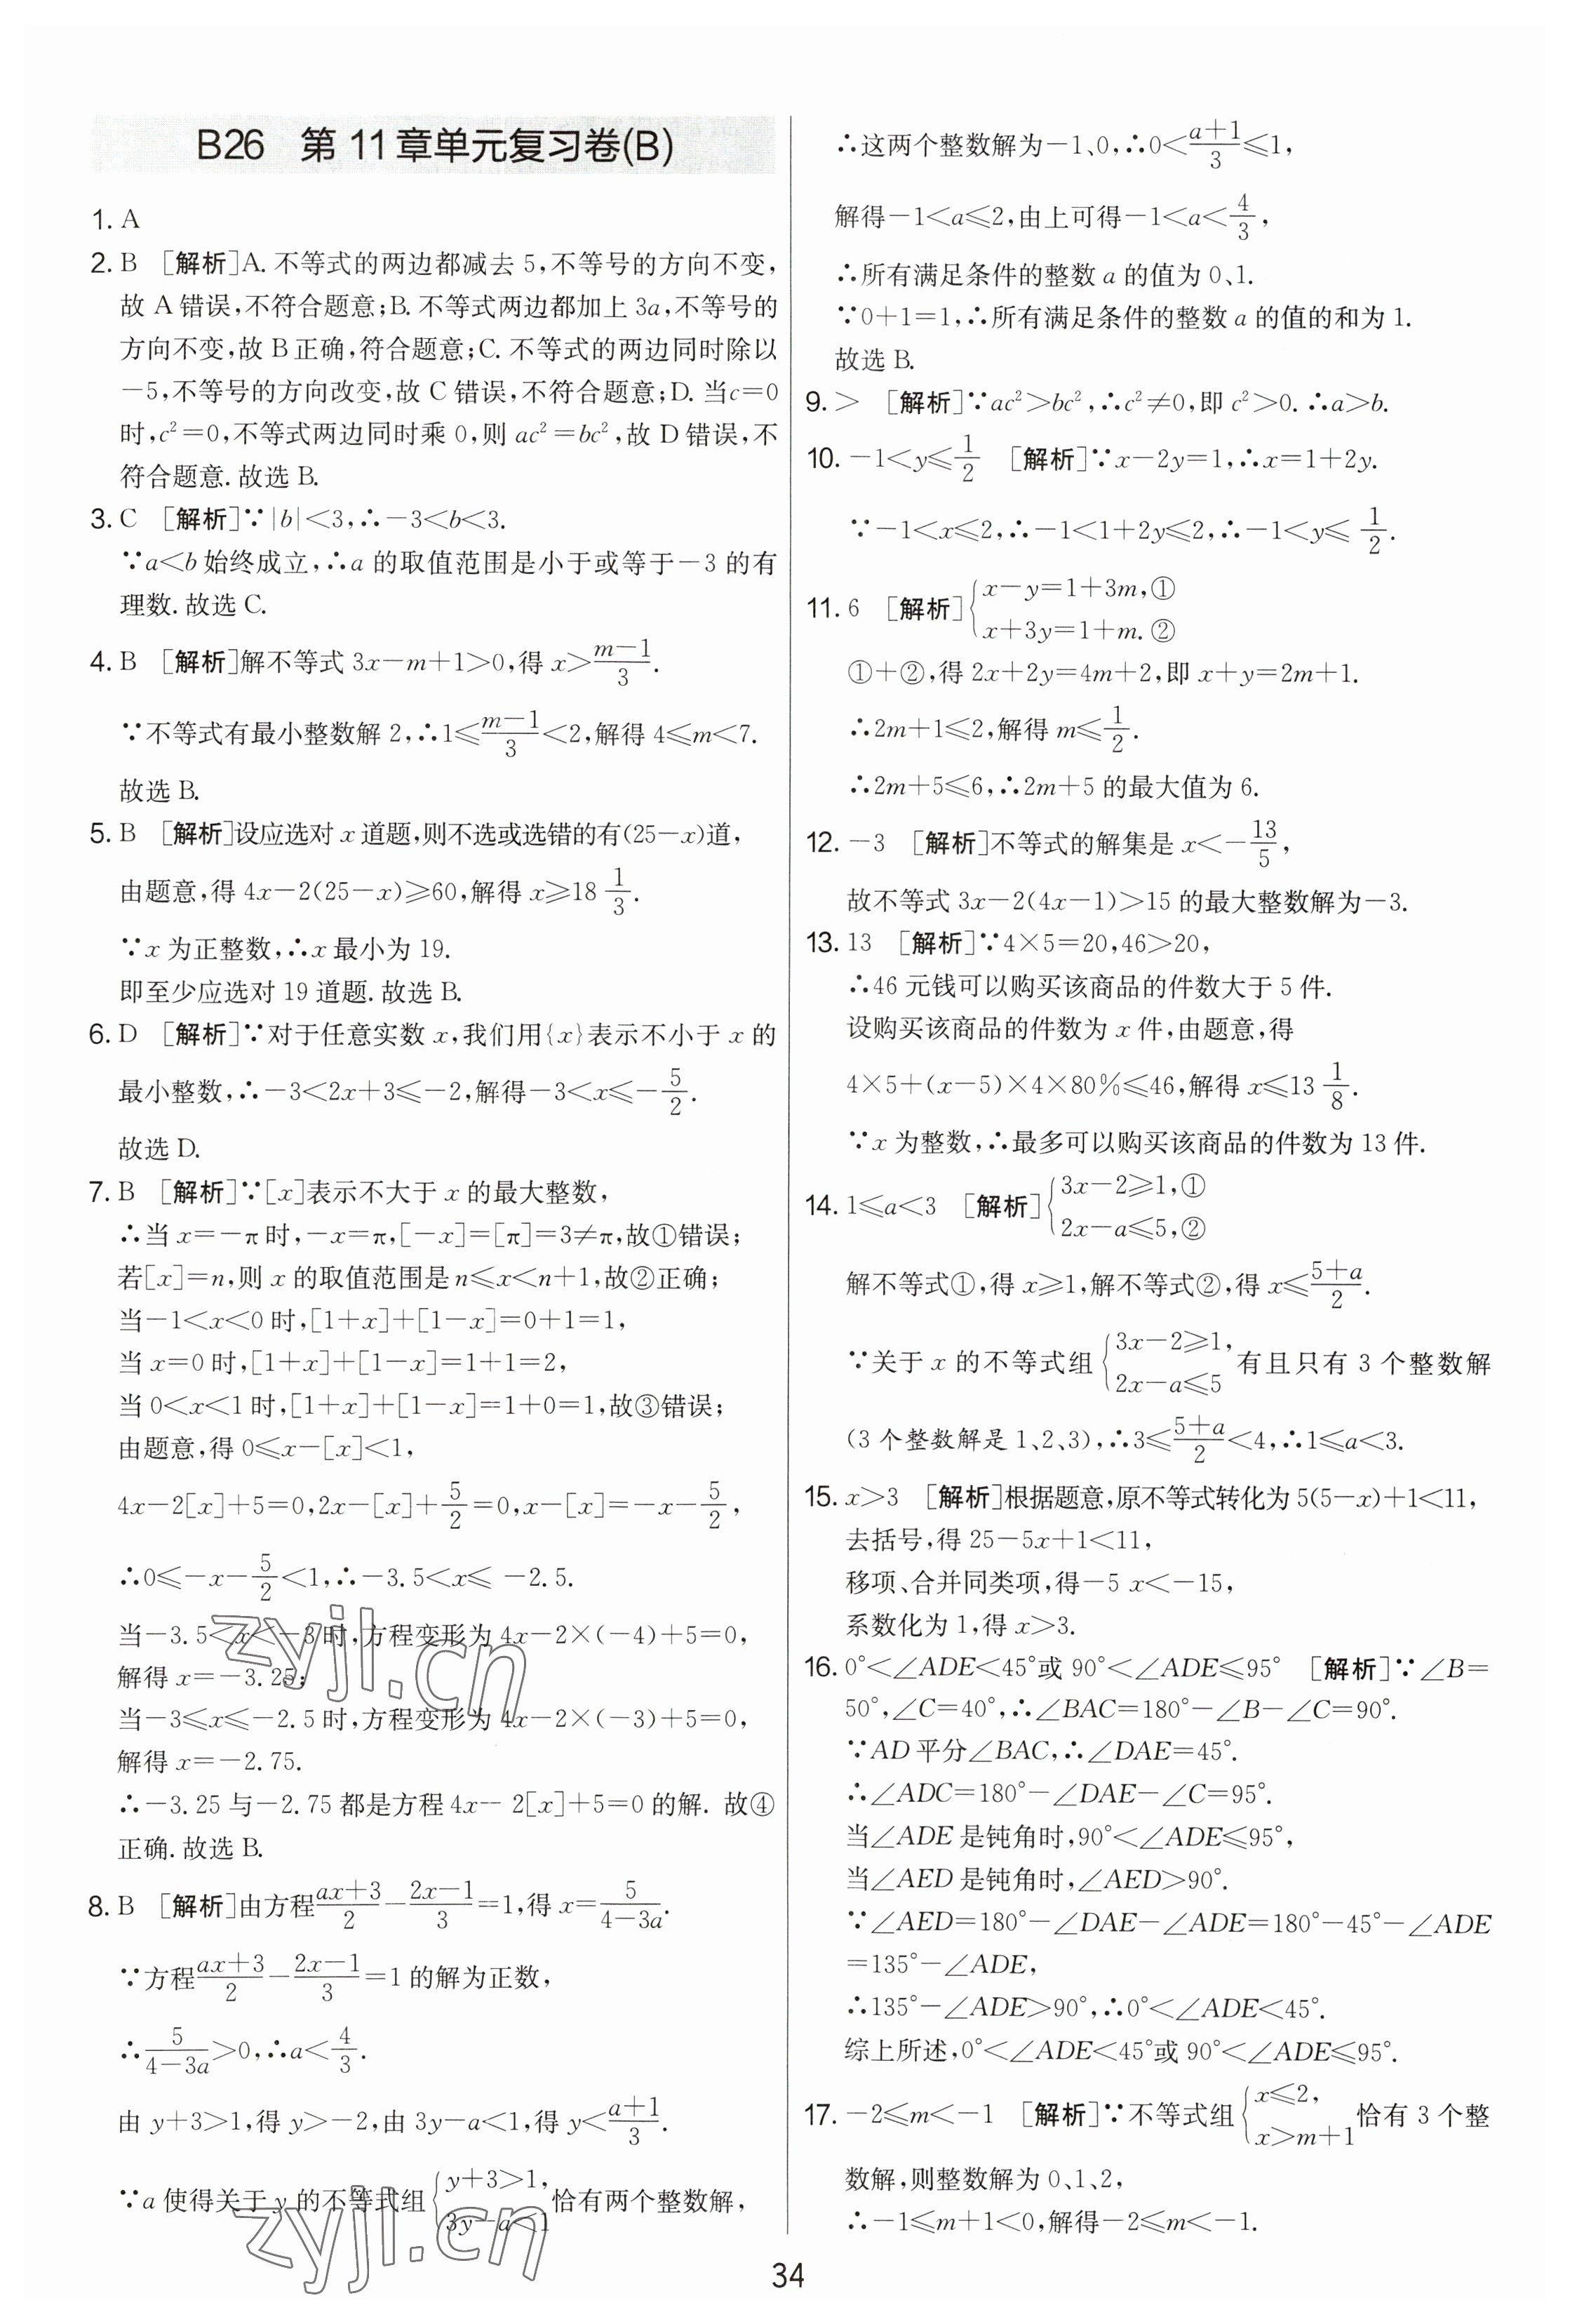 B26 第11章单元复习卷(B)
1. A
2. B [解析]A. 不等式的两边都减去5,不等号的方向不变,
故A错误,不符合题意;B. 不等式两边都加上3a,不等号的
方向不变,故B正确,符合题意;C. 不等式的两边同时除以
−5,不等号的方向改变,故C错误,不符合题意;D. 当c=0
时,c²=0,不等式两边同时乘0,则ac²=bc²,故D错误,不
符合题意. 故选B.
3. C [解析]∵|b|<3,∴−3<b<3.
∵a<b始终成立,∴a的取值范围是小于或等于−3的有
理数. 故选C.
4. B [解析]解不等式3x−m+1>0,得x>\frac{m−1}{3}.
∵不等式有最小整数解2,∴1≤\frac{m−1}{3}<2,解得4≤m<7.
故选B.
5. B [解析]设应选对x道题,则不选或选错的有(25−x)道,
由题意,得4x−2(25−x)≥60,解得x≥18\frac{1}{3}.
∵x为正整数,∴x最小为19.
即至少应选对19道题. 故选B.
6. D [解析]∵对于任意实数x,我们用{x}表示不小于x的
最小整数,∴−3<2x+3≤−2,解得−3<x≤−\frac{5}{2}.
故选D.
7. B [解析]∵[x]表示不大于x的最大整数,
∴当x=−π时,−x=π,[−x]=[π]=3≠π,故①错误;
若[x]=n,则x的取值范围是n≤x<n+1,故②正确;
当−1<x<0时,[1+x]+[1−x]=0+1=1,
当x=0时,[1+x]+[1−x]=1+1=2,
当0<x<1时,[1+x]+[1−x]=1+0=1,故③错误;
由题意,得0≤x−[x]<1,
4x−2[x]+5=0,2x−[x]+\frac{5}{2}=0,x−[x]=−x−\frac{5}{2},
∴0≤−x−\frac{5}{2}<1,∴−3.5<x≤−2.5.
当−3.5<x<−3时,方程变形为4x−2×(−4)+5=0,
解得x=−3.25;
当−3≤x≤−2.5时,方程变形为4x−2×(−3)+5=0,
解得x=−2.75.
∴−3.25与−2.75都是方程4x−2[x]+5=0的解. 故④
正确. 故选B.
8. B [解析]由方程\frac{ax+3}{2}−\frac{2x−1}{3}=1,得x=\frac{5}{4−3a}.
∵方程\frac{ax+3}{2}−\frac{2x−1}{3}=1的解为正数,
∴\frac{5}{4−3a}>0,∴a<\frac{4}{3}.
由y+3>1,得y>−2,由3y−a<1,得y<\frac{a+1}{3}.
∵a使得关于y的不等式组{y+3>1, 3y−a<1 恰有两个整数解,
∴这两个整数解为−1、0,∴0<\frac{a+1}{3}≤1,
解得−1<a≤2,由上可得−1<a<\frac{4}{3},
∴所有满足条件的整数a的值为0、1.
∵0+1=1,∴所有满足条件的整数a的值的和为1.
故选B.
9. > [解析]∵ac²>bc²,∴c²≠0,即c²>0. ∴a>b.
10. −1<y≤\frac{1}{2} [解析]∵x−2y=1,∴x=1+2y.
∵−1<x≤2,∴−1<1+2y≤2,∴−1<y≤\frac{1}{2}.
11. 6 [解析]{x−y=1+3m,① x+3y=1+m. ②
①+②,得2x+2y=4m+2,即x+y=2m+1.
∴2m+1≤2,解得m≤\frac{1}{2}.
∴2m+5≤6,∴2m+5的最大值为6.
12. −3 [解析]不等式的解集是x<−\frac{13}{5},
故不等式3x−2(4x−1)>15的最大整数解为−3.
13. 13 [解析]∵4×5=20,46>20,
∴46元钱可以购买该商品的件数大于5件.
设购买该商品的件数为x件,由题意,得
4×5+(x−5)×4×80%≤46,解得x≤13\frac{1}{8}.
∵x为整数,∴最多可以购买该商品的件数为13件.
14. 1≤a<3 [解析]{3x−2≥1,① 2x−a≤5,②
解不等式①,得x≥1,解不等式②,得x≤\frac{5+a}{2}.
∵关于x的不等式组{3x−2≥1, 2x−a≤5 有且只有3个整数解
(3个整数解是1、2、3),∴3≤\frac{5+a}{2}<4,∴1≤a<3.
15. x>3 [解析]根据题意,原不等式转化为5(5−x)+1<11,
去括号,得25−5x+1<11,
移项、合并同类项,得−5 x<−15,
系数化为1,得x>3.
16. 0°<∠ADE<45°或90°<∠ADE≤95° [解析]∵∠B=
50°,∠C=40°,∴∠BAC=180°−∠B−∠C=90°.
∵AD平分∠BAC,∴∠DAE=45°.
∴∠ADC=180°−∠DAE−∠C=95°.
当∠ADE是钝角时,90°<∠ADE≤95°,
当∠AED是钝角时,∠AED>90°.
∵∠AED=180°−∠DAE−∠ADE=180°−45°−∠ADE
=135°−∠ADE,
∴135°−∠ADE>90°,∴0°<∠ADE<45°.
综上所述,0°<∠ADE<45°或90°<∠ADE≤95°.
17. −2≤m<−1 [解析]∵不等式组{x≤2, x>m+1 恰有3个整
数解,则整数解为0、1、2,
∴−1≤m+1<0,解得−2≤m<−1.
34
zyjl.cn
zyjl.cn